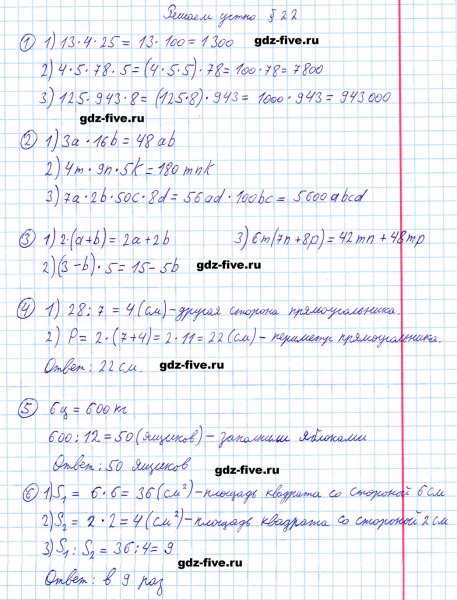 Решаем устно § 22
① 1) 13·4·25 = 13·100 = 1300 gdz-five.ru
2) 4·5·78·5 = (4·5·5)·78 = 100·78 = 7800
3) 125·943·8 = (125·8)·943 = 1000·943 = 943000
gdz-five.ru
② 1) 3a·16b = 48ab
2) 4m·9n·5k = 180mnk
3) 7a·2b·50c·8d = 56ad·100bc = 5600abcd
gdz-five.ru
③ 1) 2·(a+b) = 2a+2b 3) 6m(7n+8p) = 42mn+48mp
2) (3-b)·5 = 15-5b gdz-five.ru
④ 1) 28:7 = 4 (см) - другая сторона прямоугольника.
2) P = 2·(7+4) = 2·11 = 22 (см) - периметр прямоугольника.
Ответ: 22 см. gdz-five.ru
⑤ 6ц = 600кг
600:12 = 50 (ящиков) - заполнили яблоками
Ответ: 50 ящиков gdz-five.ru
⑥ 1) S₁ = 6·6 = 36 (см²) - площадь квадрата со стороной 6см
2) S₂ = 2·2 = 4 (см²) - площадь квадрата со стороной 2см
3) S₁:S₂ = 36:4 = 9
gdz-five.ru
Ответ: в 9 раз